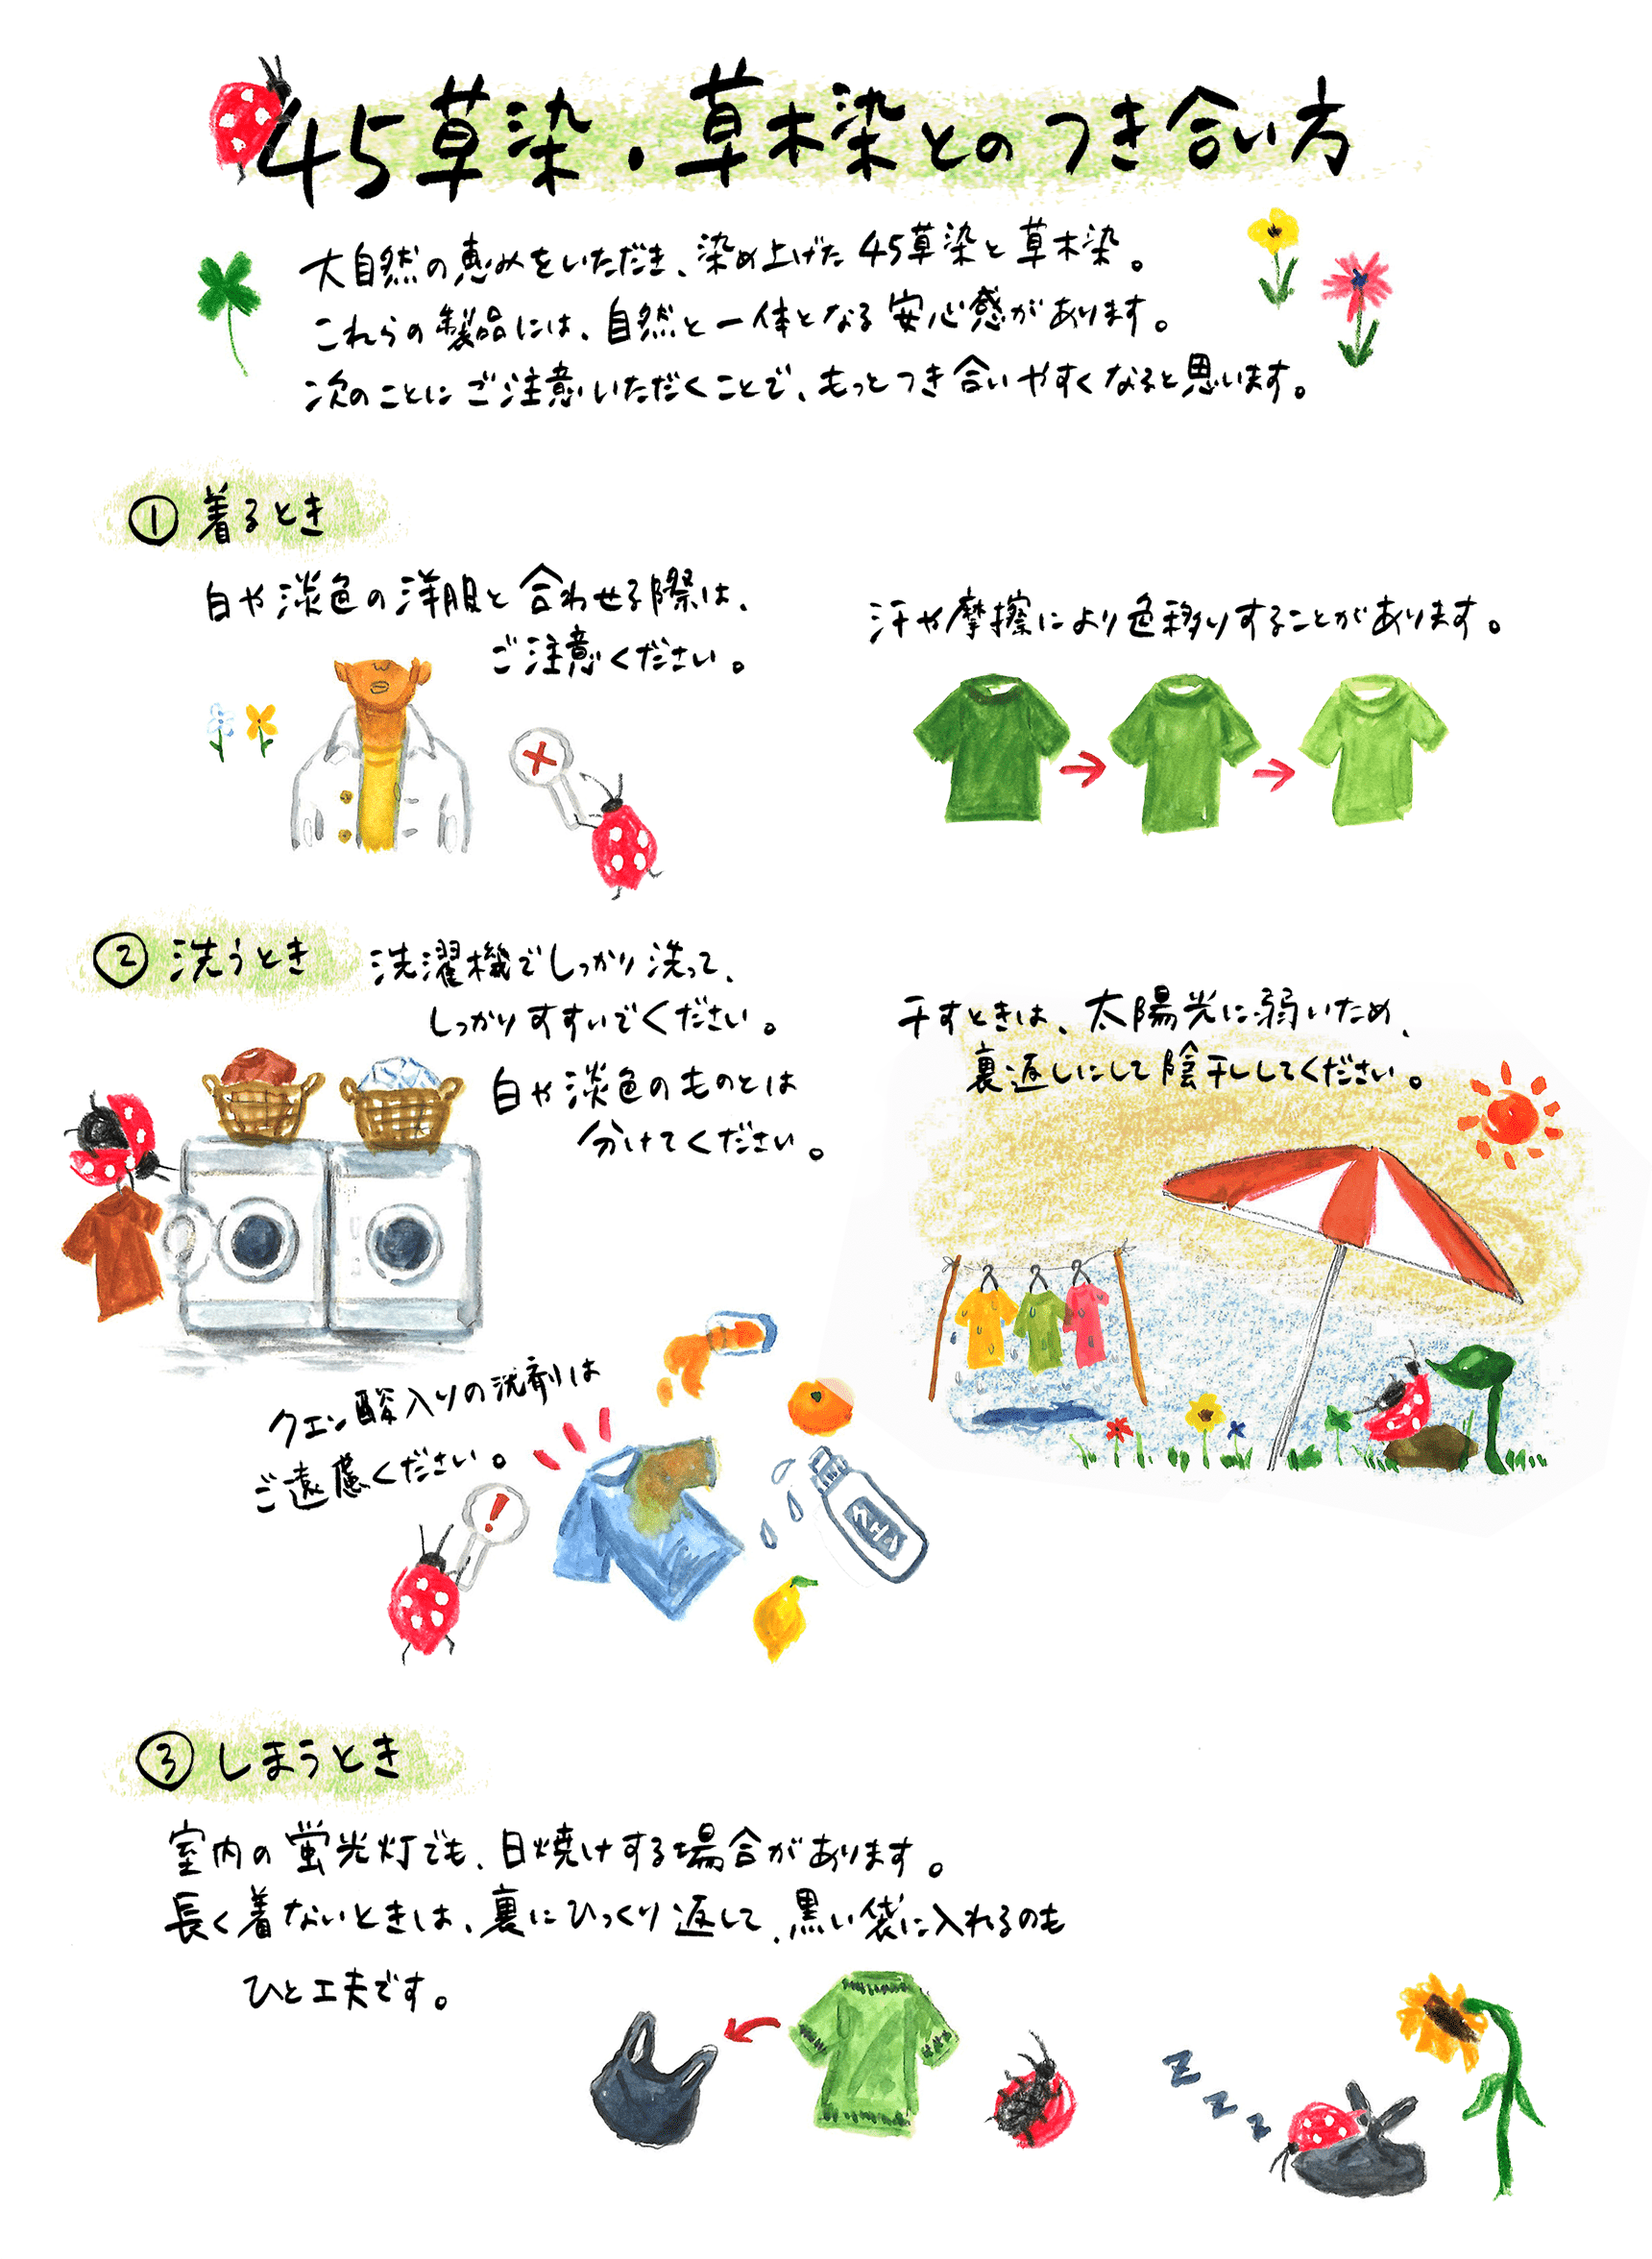 45草染・草木染とのつき合い方
大自然の恵みをいただき、染め上げた45草染と草木染。
これらの製品には、自然と一体となる安心感があります。
次のことにご注意いただくことで、もっとつき合いやすくなると思います。
① 着るとき
白や淡色の洋服と合わせる際は、
ご注意ください。
汗や摩擦により色移りすることがあります。
② 洗うとき
洗濯機でしっかり洗って、
しっかりすすいでください。
白や淡色のものとは
分けてください。
干すときは、太陽光に弱いため、
裏返しにして陰干ししてください。
クエン酸入りの洗剤は
ご遠慮ください。
!
③ しまうとき
室内の蛍光灯でも、日焼けする場合があります。
長く着ないときは、裏にひっくり返して、黒い袋に入れるのも
ひと工夫です。
z z z